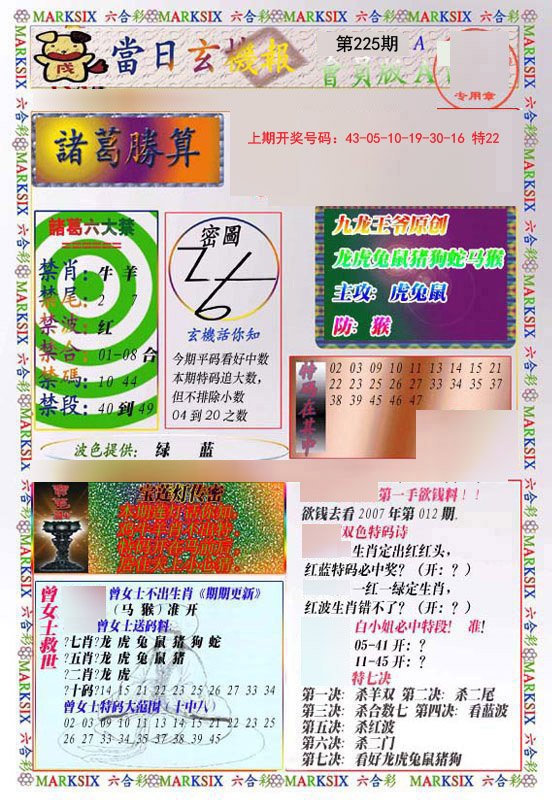 MARKSIX 六合彩 MARKSIX 六合彩 MARKSIX 六合彩 MARKSIX 六合彩
當日玄機報
第225期 A
會員版A
专用章
諸葛勝算
上期开奖号码：43-05-10-19-30-16 特22
諸葛六大禁
禁肖：牛 羊
禁尾：2 7
禁波：红
禁合：01-08 合
禁碼：10 44
禁段：40 到 49
密圖
玄機話你知
今期平码看好中数
本期特码追大数，
但不排除小数
04 到 20 之数
波色提供： 绿 蓝
九龙王爷原创
龙虎兔鼠猪狗蛇马猴
主攻：虎兔鼠
防：猴
特码在其中
02 03 09 10 11 13 14 15 21
22 23 25 26 27 33 34 35 37
38 39 45 46 47
宝莲灯传密
曾女士救世
曾女士不出生肖《期期更新》
（马 猴）准 开
曾女士送码料:
?七肖?龙 虎 兔 鼠 猪 狗 蛇
?五肖?龙 虎 兔 鼠 猪
?二肖?龙 虎
?十码?14 15 21 22 23 25 26 27 33 34
曾女士特码大范围（十中八）
02 03 09 10 11 13 14 15 21 22 23 25
26 27 33 34 35 37 38 39 45
第一手欲钱料！！
欲钱去看 2007 年第 012 期.
双色特码诗
生肖定出红红头，
红蓝特码必中奖？（开：？）
一红一绿定生肖，
红波生肖错不了？（开：？）
白小姐必中特段！ 准!
05-41 开：？
11-45 开：？
特七决
第一决：杀羊双 第二决：杀二尾
第三决：杀合数七 第四决：看蓝波
第五决：杀红波
第六决：杀二门
第七决：看好龙虎兔鼠猪狗
MARKSIX 六合彩 MARKSIX 六合彩 MARKSIX 六合彩 MARKSIX 六合彩